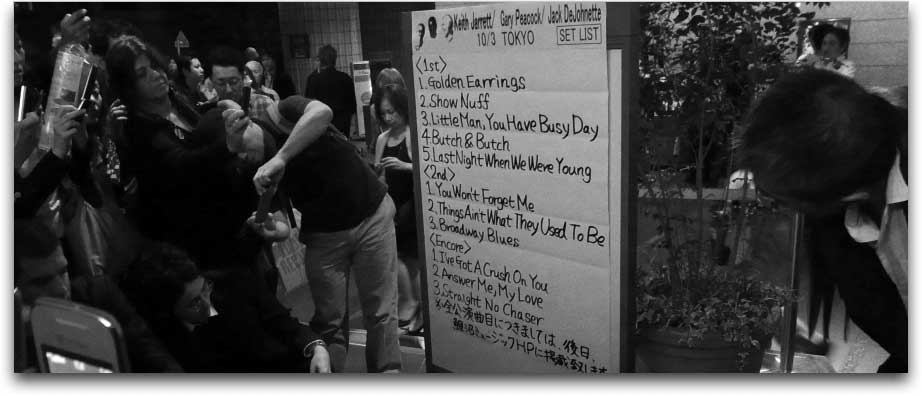 Keith Jarrett/ Gary Peacock/ Jack DeJohnette
10/3 TOKYO SET LIST
<1st>
1. Golden Earrings
2. Show Nuff
3. Little Man, You Have Busy Day
4. Butch & Butch
5. Last Night When We Were Young
<2nd>
1. You Won't Forget Me
2. Things Ain't What They Used To Be
3. Broadway Blues
<Encore>
1. I've Got A Crush On You
2. Answer Me, My Love
3. Straight No Chaser
※全公演曲目につきましては、後日、
鯉沼ミュージックHPに掲載致します